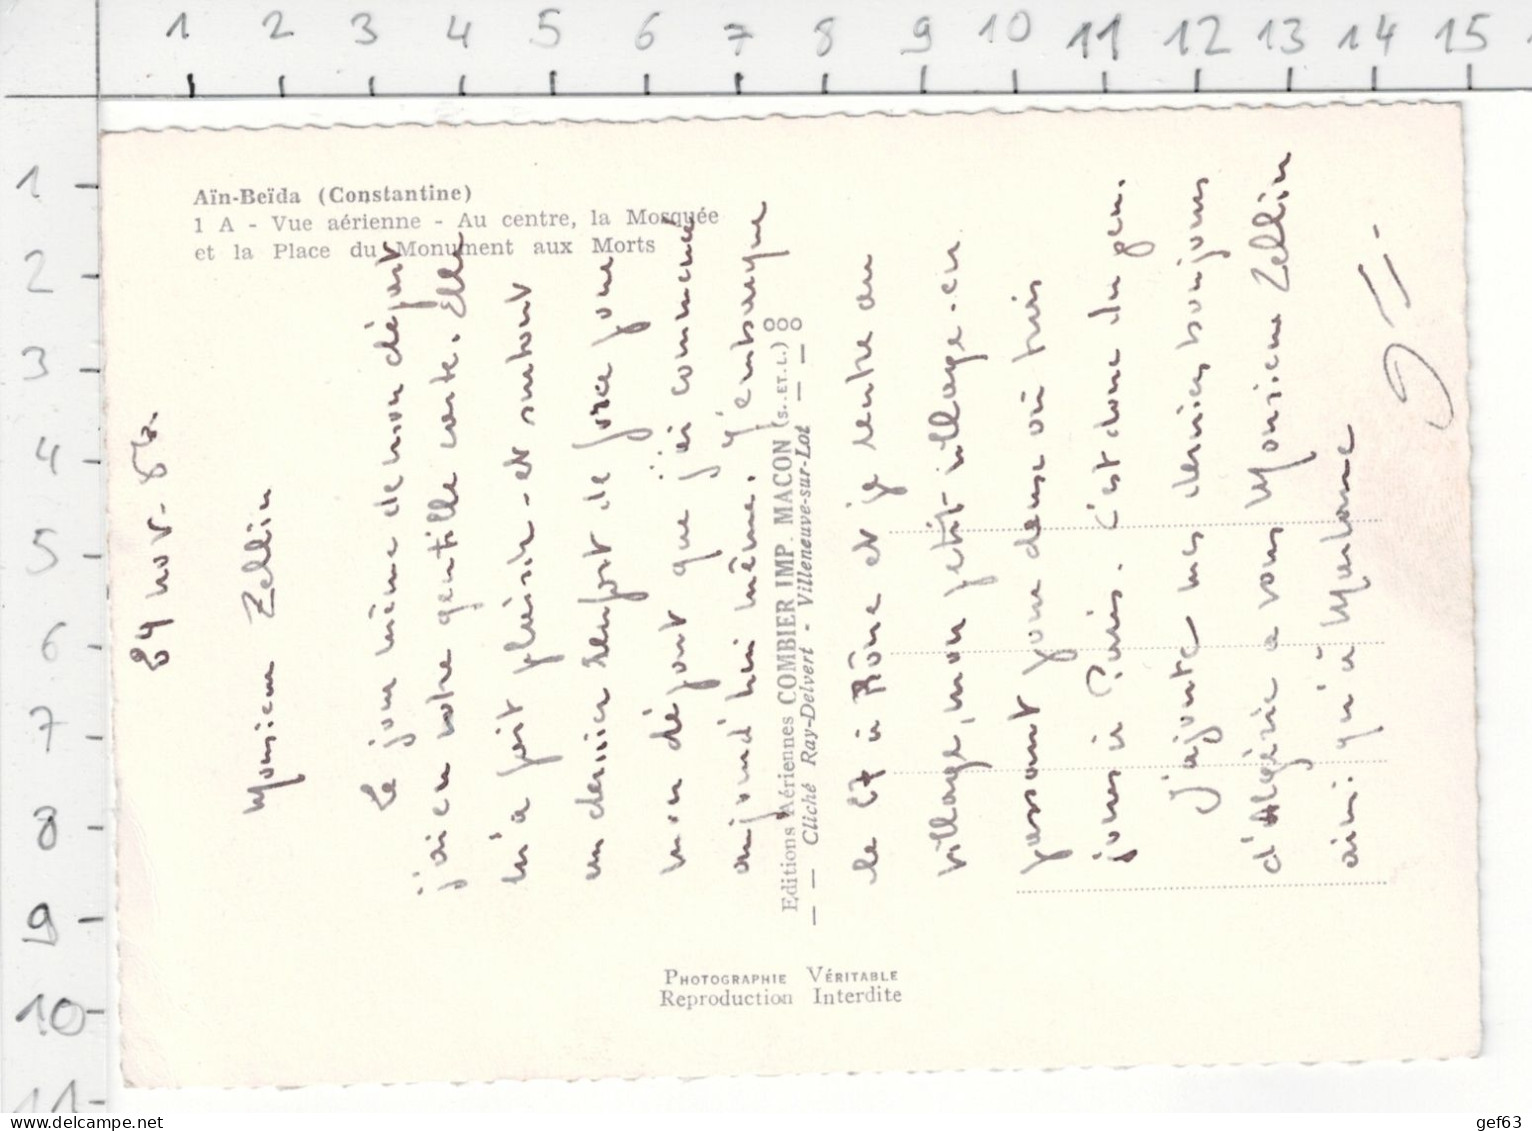 1 2 3 4 5 6 7 8 9 10 11 12 13 14 15
1
2
3
4
5
6
7
8
9
10
11
Aïn-Beïda (Constantine)
1 A - Vue aérienne - Au centre, la Mosquée
et la Place du Monument aux Morts
24 nov.
Monsieur Zellin
Le jour même de mon départ
j'ai eu votre gentille carte. Elle
m'a fait plaisir - et surtout
un dernier renfort de force pour
mon départ que j'ai commencé
aujourd'hui même. J'embarque
le 27 à Bône et je rentre au
village, mon petit village. en
passant pour deux où trois
jours à Paris. C'est donc du peu.
J'ajoute mes derniers bonjours
d'Algérie a vous Monsieur Zellin
ainsi qu'à Madame
Editions Aériennes COMBIER IMP. MACON (S.-ET-L.)
Cliché Ray-Delvert - Villeneuve-sur-Lot
PHOTOGRAPHIE VÉRITABLE
Reproduction Interdite
www.delcampe.net
gef63